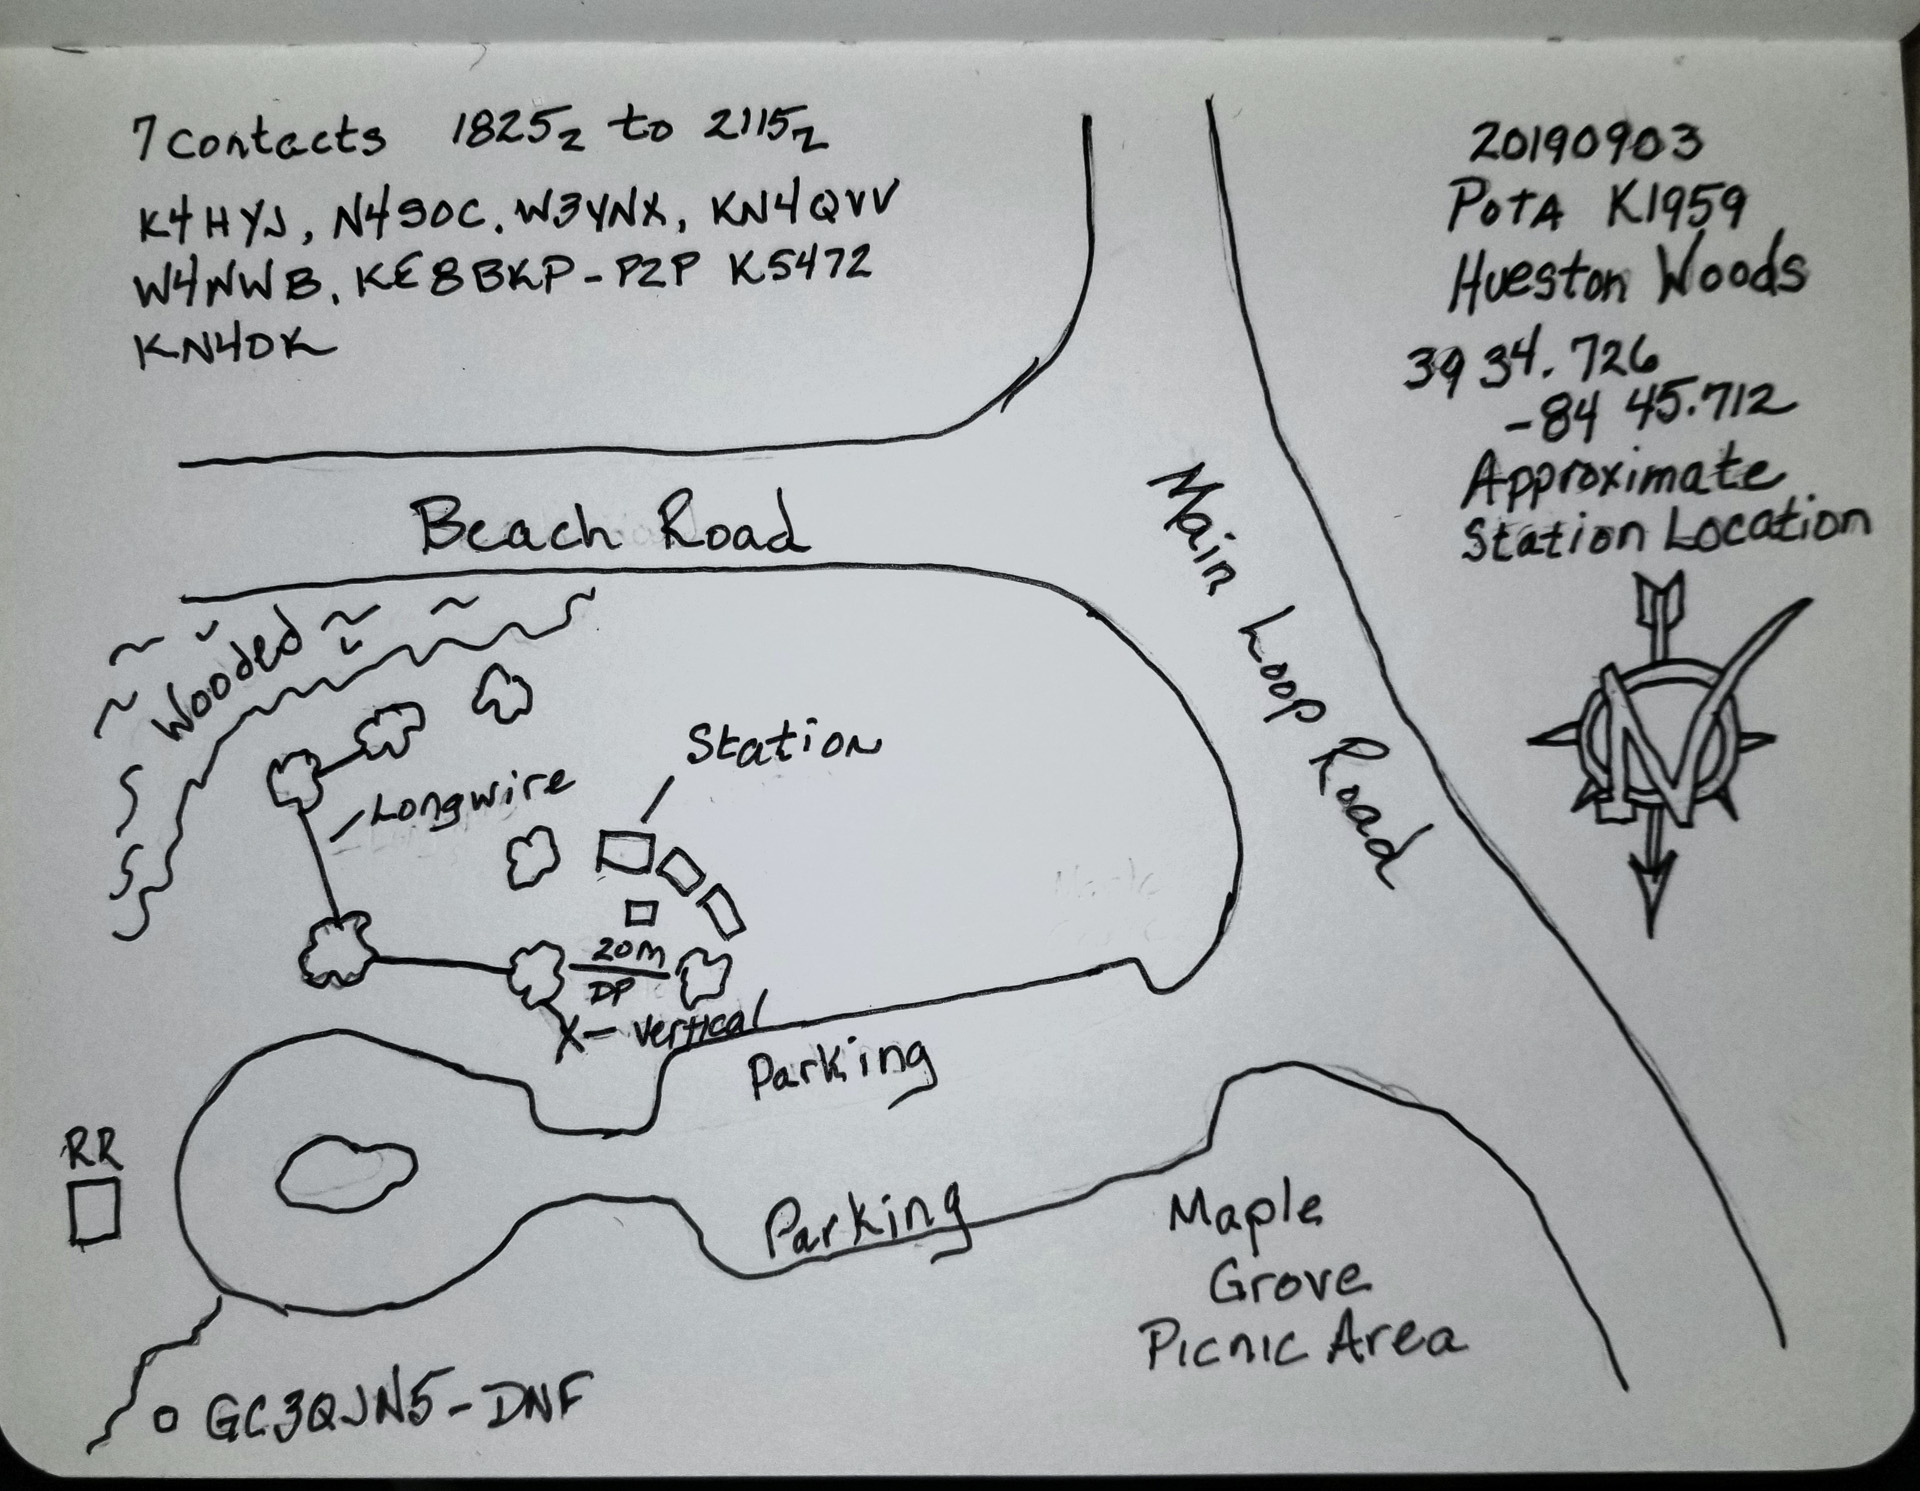 7 contacts 1825z to 2115z
K4HYJ, N4SOC, W3YNX, KN4QVV
W4NWB, KE8BKP-P2P K5472
KN4DK
20190903
POTA K1959
Hueston Woods
39 34.726
-84 45.712
Approximate
Station Location
Beach Road
Main Loop Road
Wooded
N
Station
Longwire
20m
DP
X-Vertical
Parking
RR
Parking
Maple
Grove
Picnic Area
GC3QJN5-DNF